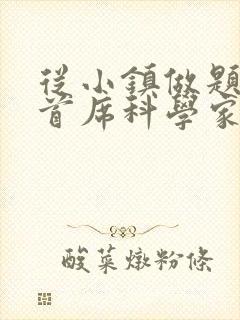 從小鎮做題
首席科學家
酸菜燉粉條